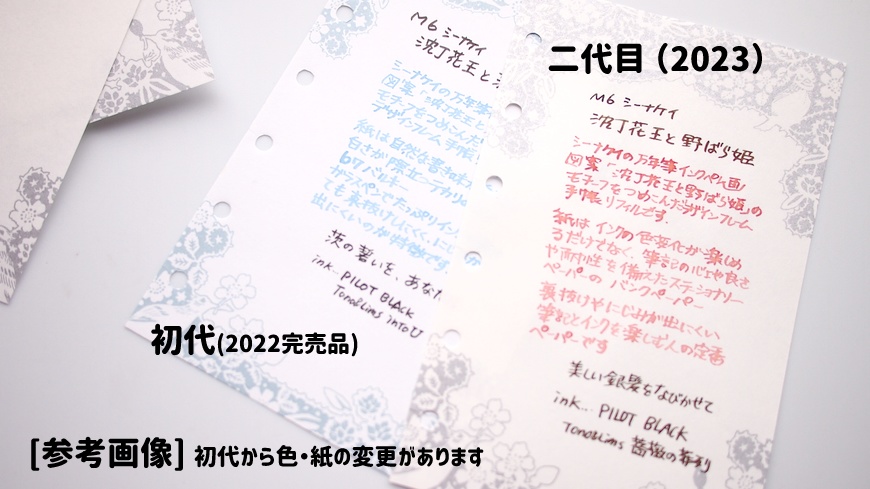 二代目（2023）
初代(2022完売品)
[参考画像] 初代から色・紙の変更があります
M6 シーナケイ
沈丁花王と
シーナケイの万年筆
図案「沈丁花王と
モチーフをつめこんだ
デザインフレーム 手帳
紙は自然な書き
白さが際立つ
b7バルキー
でたっぷりイン
ても裏抜けしにくく、に
出にくいのが特徴です。
茨の誓いを、あなた
ink... PILOT BLACK
Tono&Lims into U
M6 シーナケイ
沈丁花王と野ばら姫
シーナケイの万年筆インクペン画
図案「沈丁花王と野ばら姫」の
モチーフをつめこんだデザインフレーム
手帳リフィルです。
紙はインクの色変化が楽しめ
るだけでなく、筆記の心地良さ
や耐水性を備えたステーショナリー
ペーパーのバンクペーパー
裏抜けやにじみが出にくい、
筆記とインクを楽しむ人の定番
ペーパーです
美しい銀髪をなびかせて
ink... PILOT BLACK
Tono&Lims 薔薇の